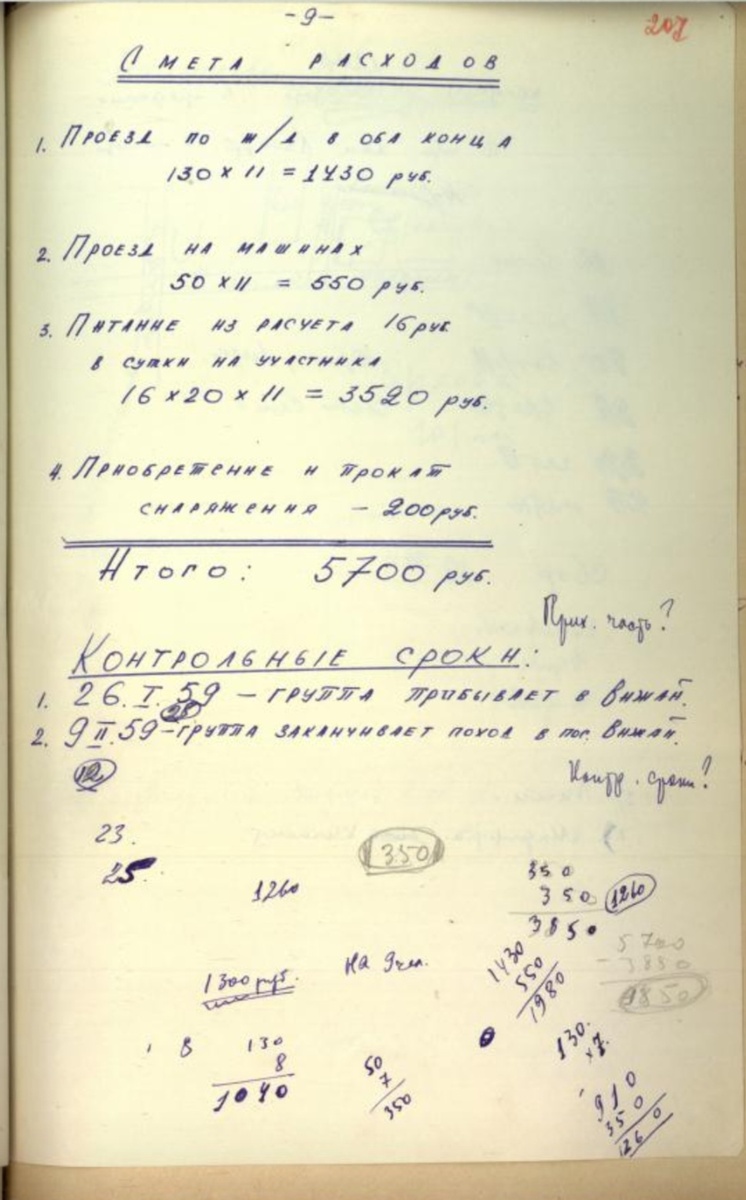 -9-
207
Смета расходов
1. Проезд по ж/д в оба конца
130 × 11 = 1430 руб.
2. Проезд на машинах
50 × 11 = 550 руб.
3. Питание из расчета 16 руб
в сутки на участника
16 × 20 × 11 = 3520 руб.
4. Приобретение и прокат
снаряжения - 200 руб.
Итого: 5700 руб.
Прих. часть?
Контрольные сроки:
1. 26.I.59 - группа прибывает в Вижай.
28
2. 9 II.59 - группа заканчивает поход в пос. Вижай.
12
Контр. сроки?
23.
25.
1350
1260
350
350
3850
1260
5700
- 3850
1850
1300 руб.
на 9 чел.
1430
550
1980
В 130
8
1040
50
7
350
130.
×7.
910
350
1260